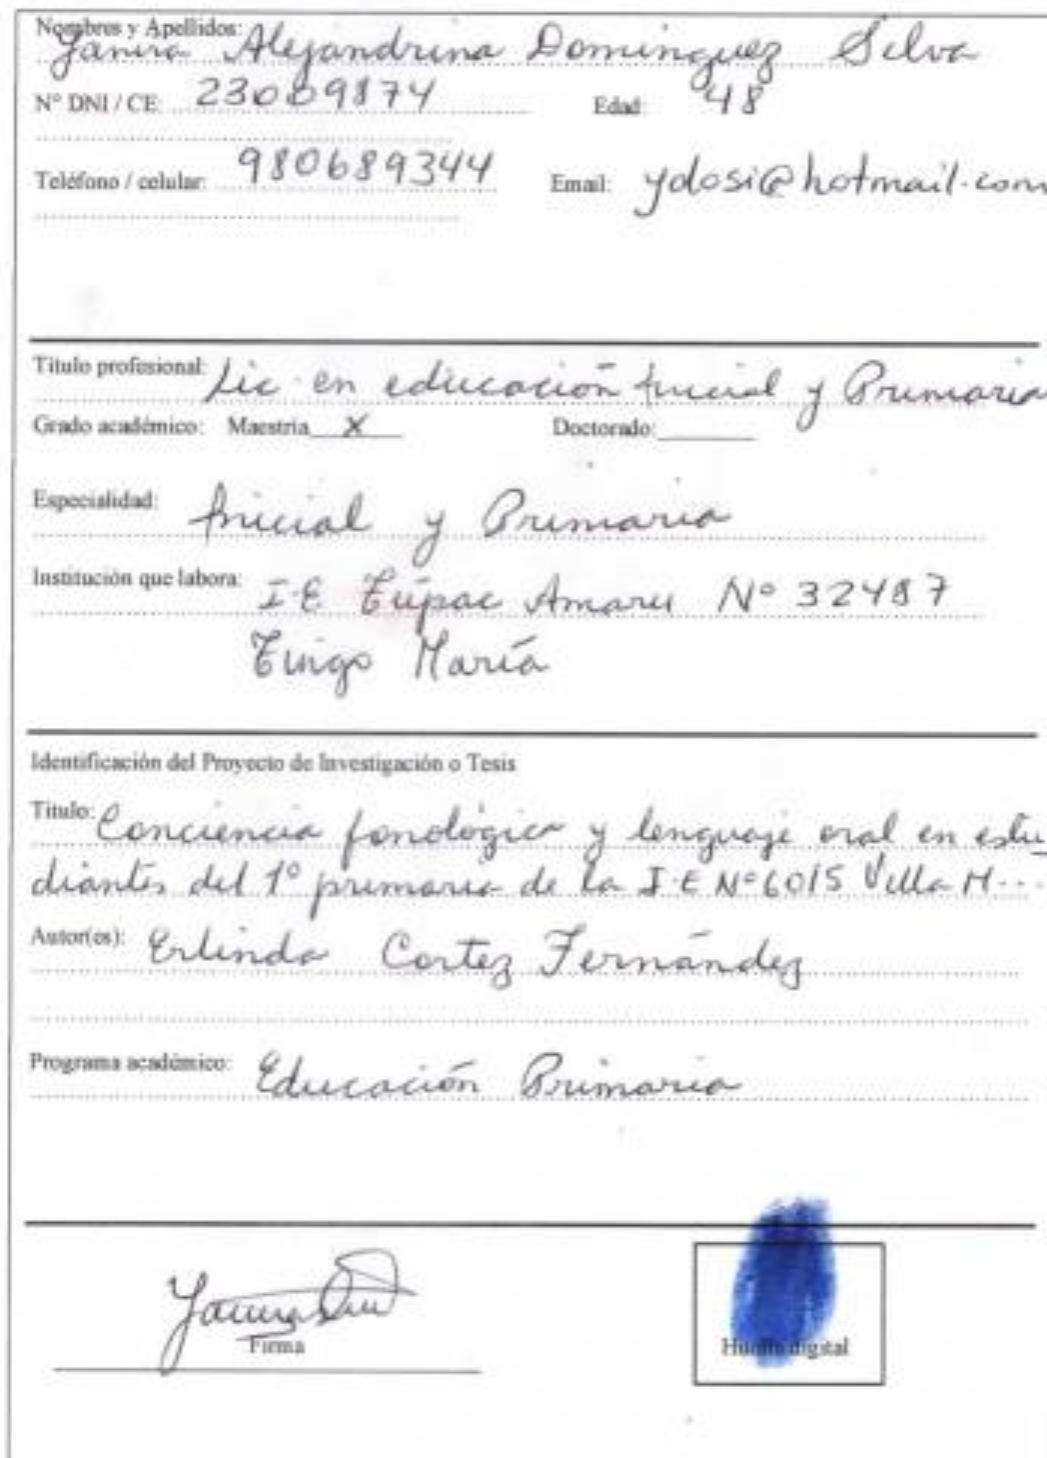 Nombres y Apellidos: Yanira Alejandrina Dominguez Silva
N° DNI / CE: 23009874 Edad: 48
Teléfono / celular: 980689344 Email: ydosi@hotmail.com
Título profesional: Lic en educación Inicial y Primaria
Grado académico: Maestría X Doctorado:
Especialidad: Inicial y Primaria
Institución que labora: I.E Túpac Amaru N° 32487
Tingo María
Identificación del Proyecto de Investigación o Tesis
Titulo: Conciencia fonológica y lenguaje oral en estu
diantes del 1° primaria de la I.E N°6015 Villa M...
Autor(es): Erlinda Cortez Fernández
Programa académico: Educación Primaria
Firma
Huella digital